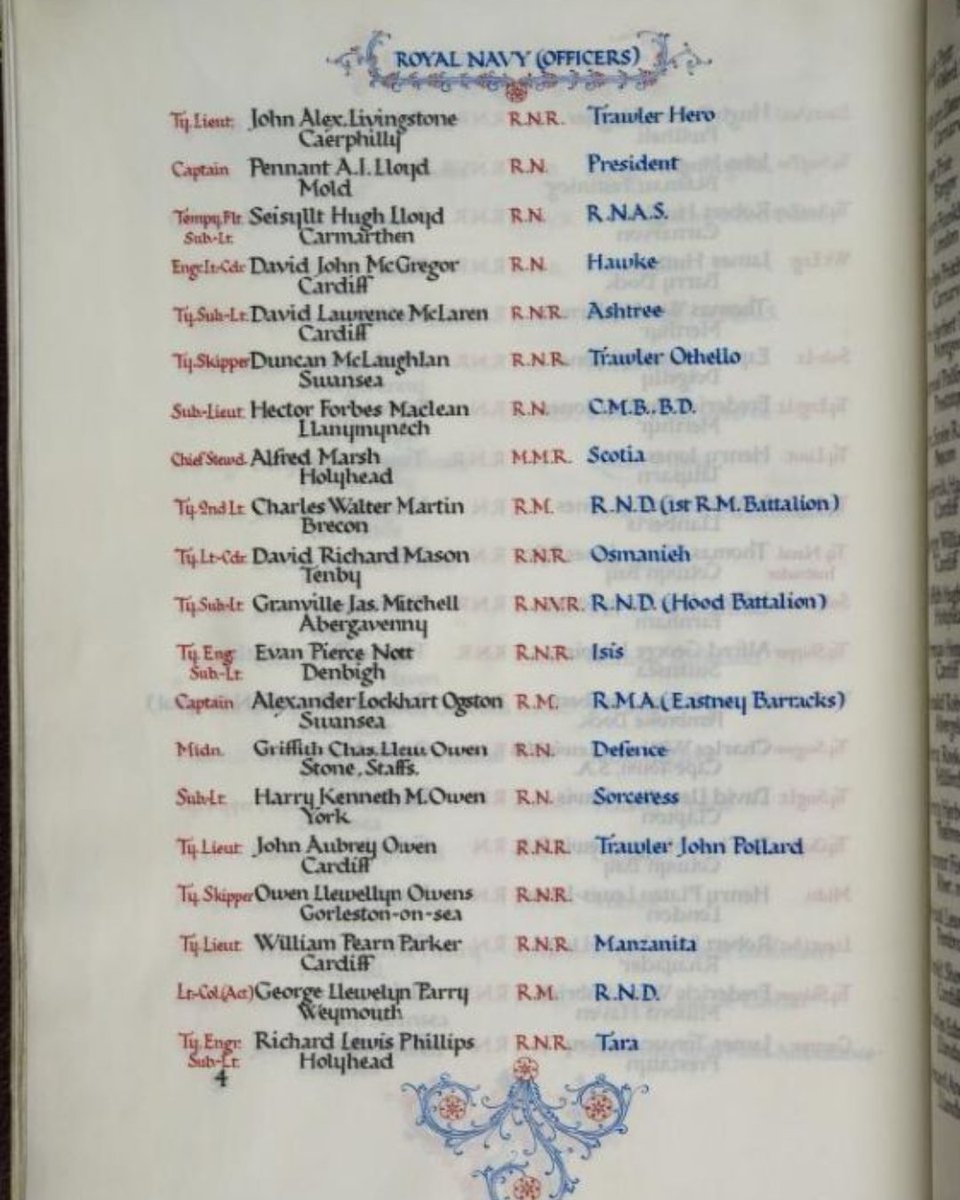 ROYAL NAVY (OFFICERS)
Ty. Lieut. John Alex. Livingstone R.N.R. Trawler Hero
Caerphilly
Captain Pennant A.I. Lloyd R.N. President
Mold
Tempy. Flt. Seisyllt Hugh Lloyd R.N. R.N.A.S.
Sub-Lt. Carmarthen
Engr. Lt-Cdr. David John McGregor R.N. Hawke
Cardiff
Ty. Sub-Lt. David Lawrence McLaren R.N.R. Ashtree
Cardiff
Ty. Skipper Duncan McLaughlan R.N.R. Trawler Othello
Swansea
Sub-Lieut. Hector Forbes Maclean R.N. C.M.B., B.D.
Llanymynech
Chief Stewd. Alfred Marsh M.M.R. Scotia
Holyhead
Ty. 2nd Lt. Charles Walter Martin R.M. R.N.D. (1st R.M. Battalion)
Brecon
Ty. Lt-Cdr. David Richard Mason R.N.R. Osmanieh
Tenby
Ty. Sub-Lt. Granville Jas. Mitchell R.N.V.R. R.N.D. (Hood Battalion)
Abergavenny
Ty. Engr. Evan Pierce Nott R.N.R. Isis
Sub-Lt. Denbigh
Captain Alexander Lockhart Ogston R.M. R.M.A. (Eastney Barracks)
Swansea
Midn. Griffith Chas. Llew Owen R.N. Defence
Stone, Staffs.
Sub-Lt. Harry Kenneth M. Owen R.N. Sorceress
York
Ty. Lieut. John Aubrey Owen R.N.R. Trawler John Pollard
Cardiff
Ty. Skipper Owen Llewellyn Owens R.N.R.
Gorleston-on-sea
Ty. Lieut. William Pearn Parker R.N.R. Manzanita
Cardiff
Lt-Col. (Act) George Llewelyn Parry R.M. R.N.D.
Weymouth
Ty. Engr. Richard Lewis Phillips R.N.R. Tara
Sub-Lt. Holyhead
4